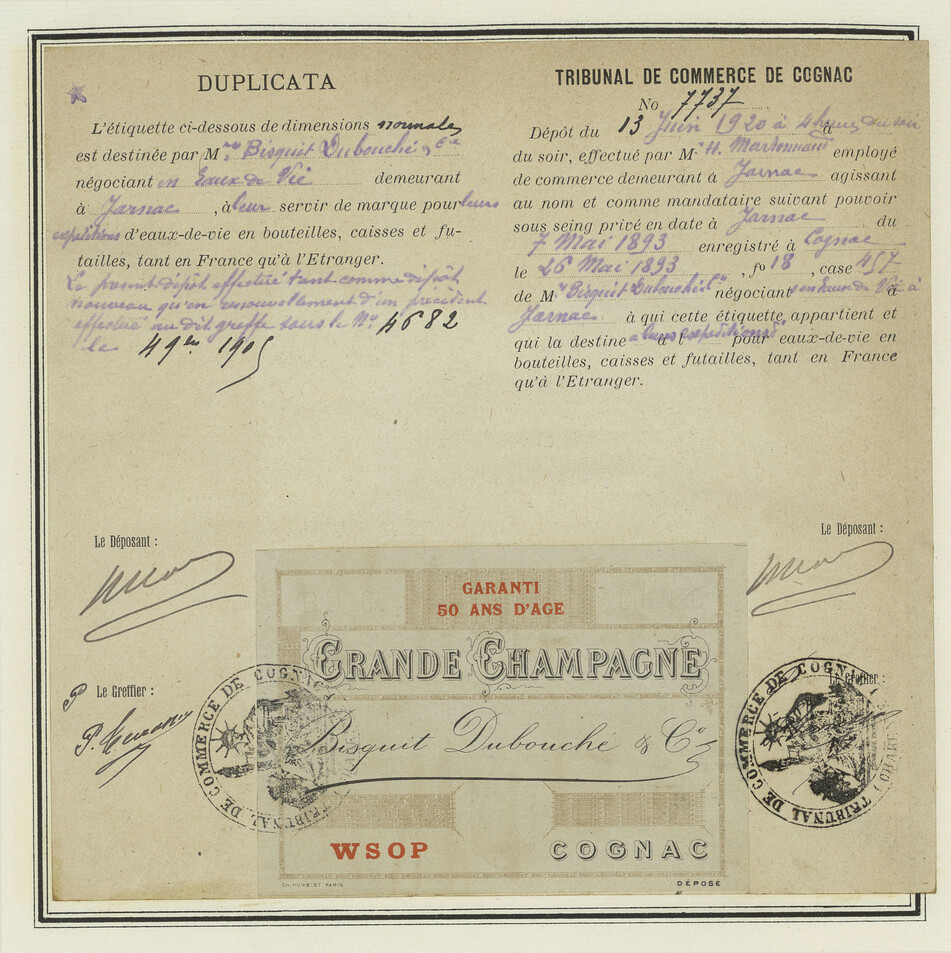 DUPLICATA
L'étiquette ci-dessous de dimensions normales
est destinée par Mrs Bisquit Dubouché & Cie
négociant en Eaux de Vie demeurant
à Jarnac, à leur servir de marque pour leurs
expéditions d'eaux-de-vie en bouteilles, caisses et fu-
tailles, tant en France qu'à l'Etranger.
Le présent dépôt effectué tant comme dépôt
nouveau qu'en renouvellement d'un précédent
effectué au dit greffe sous le No 4682
le 1905
TRIBUNAL DE COMMERCE DE COGNAC
No 7737
Dépôt du 13 Juin 1920 à 4 heures du soir
du soir, effectué par Mr H. Martonnaud employé
de commerce demeurant à Jarnac agissant
au nom et comme mandataire suivant pouvoir
sous seing privé en date à Jarnac du
7 Mai 1893 enregistré à Cognac
le 26 Mai 1893, fo 18, case 457
de Mrs Bisquit Dubouché & Cie négociants en eaux de Vie à
Jarnac à qui cette étiquette appartient et
qui la destine à leurs expéditions d' pour eaux-de-vie en
bouteilles, caisses et futailles, tant en France
qu'à l'Etranger.
Le Déposant :
Le Déposant :
GARANTI
50 ANS D'AGE
GRANDE CHAMPAGNE
Bisquit Dubouché & Co
WSOP
COGNAC
CH. HUMBLOT PARIS
DÉPOSÉ
P Le Greffier :
Le Greffier :
TRIBUNAL DE COMMERCE DE COGNAC
TRIBUNAL DE COMMERCE DE COGNAC (CHARENTE)